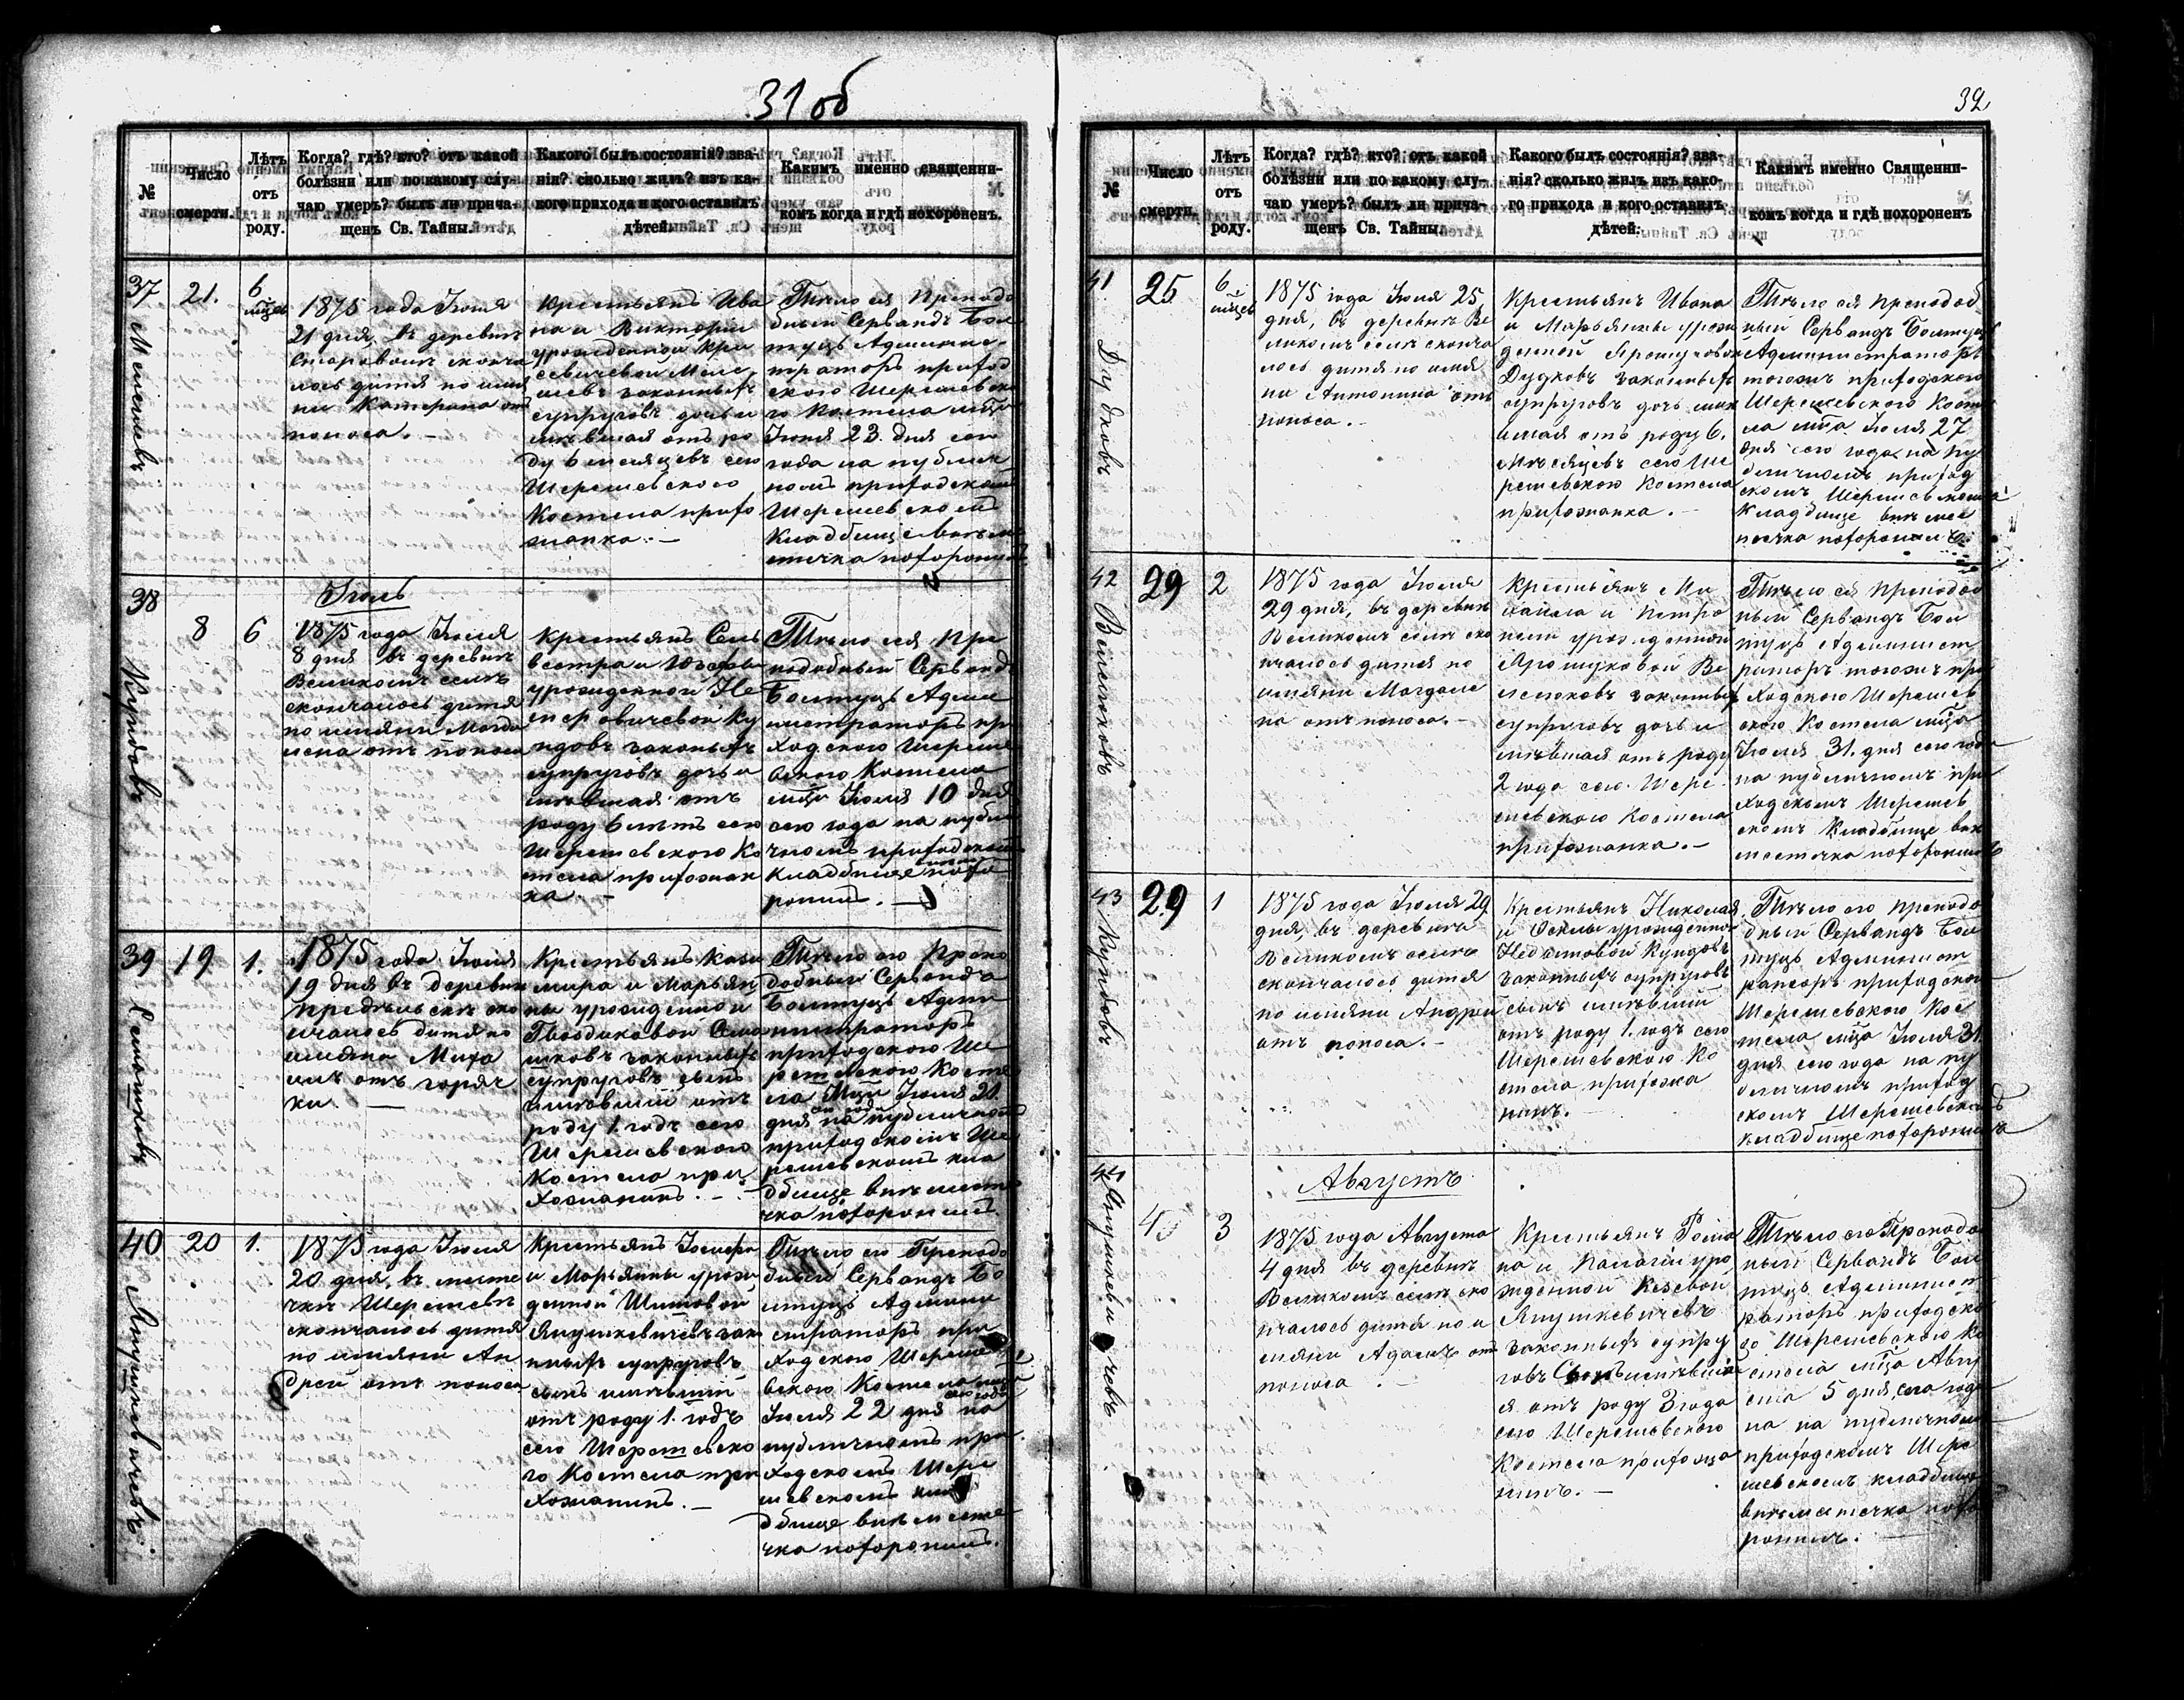 31 об
№
Число смерти.
Лѣтъ отъ роду.
Когда? гдѣ? кто? отъ какой
болѣзни или по какому слу-
чаю умеръ? былъ ли прича-
щенъ Св. Тайны.
Какого былъ состоянія? зва-
нія? сколько жилъ? изъ ка-
кого прихода и кого оставилъ
дѣтей.
Какимъ именно священни-
комъ когда и гдѣ похороненъ.
37
21.
6
мѣцев
1875 года Іюня
21 дня, въ деревнѣ
скончá
лось дитя по имя
ни Катерина отъ
поноса. —
Крестьянъ Ива
на и Викторіи
урожденной
законныхъ
супруговъ дочь и
мѣвшая отъ ро
ду 6 месяцевъ сего
Шерешевского
Костела прихо
жанка. —
Тѣло ея Преподо
бный Сервандъ Бол
туць Админис
траторъ приход
ского Шерешевско
го Костела мѣца
Іюня 23 дня сего
года на публич
номъ приходскомъ
Шерешевскомъ
Кладбище внѣ ме
стечка похоронилъ.
38
Іюль
8
6
Кундовъ
1875 года Іюля
8 дня въ деревнѣ
Великомъ селѣ
скончалось дитя
по имяни Магда
лена отъ поноса
Крестьянъ Силь
вестра и Юзефы
урожденной Не
стеровичевой Ку
ндовъ законныхъ
супруговъ дочь и
мѣвшая отъ
роду 6 летъ сего
Шерешевского Ко
стела прихожан
ка. —
Тѣло ея Пре
подобный Сервандъ
Болтуць Адми
нистраторъ при
ходского Шереше
вского Костела
мѣца Іюля 10 дня
сего года на публи
чномъ приходскомъ
Кладбище похо
ронилъ. —
39
19
1.
1875 года Іюля
19 дня въ деревнѣ
ско
нчалось дитя по
имяни Миха
илъ отъ горяч
ки. —
Крестьянъ Кази
мира и Марьян
ны урожденной
Гвоздиковой
законныхъ
супруговъ сынъ
имѣвшій отъ
роду 1. годъ сего
Шерешевского
Костела при
хожанинъ. —
Тѣло его Препо
добный Сервандъ
Болтуць Адми
нистраторъ
приходского Ше
решевского Косте
ла Мѣца Іюля 21.
дня на публичномъ
приходскомъ Ше
решевскомъ кла
дбище внѣ месте
чка похоронилъ.
40
20
1.
Янушкевичевъ
1875 года Іюля
20 дня, въ месте
чкѣ Шерешевѣ
скончалось дитя
по имяни Ан
дрей отъ поноса
Крестьянъ Іосифа
и Марьянны урож
денной Шитовой
Янушкевичевъ зако
нныхъ супруговъ
сынъ имѣвшій
отъ роду 1. годъ
сего Шерешевско
го Костела при
хожанинъ. —
Тѣло его Преподо
бный Сервандъ Бо
лтуць Админи
страторъ при
ходского Шереше
вского Костела мѣца
Іюля 22 дня сего года на
публичномъ при
ходскомъ Шере
шевскомъ кла
дбище внѣ месте
чка похоронилъ.
32
№
Число смерти.
Лѣтъ отъ роду.
Когда? гдѣ? кто? отъ какой
болѣзни или по какому слу-
чаю умеръ? былъ ли прича-
щенъ Св. Тайны.
Какого былъ состоянія? зва-
нія? сколько жилъ изъ како-
го прихода и кого оставилъ
дѣтей.
Какимъ именно Священни-
комъ когда и гдѣ похороненъ
41
25
6
мѣцев
Дудковъ
1875 года Іюля 25,
дня, въ деревнѣ Ве
ликомъ селѣ сконча
лось дитя по имя
ни Антонина отъ
поноса. —
Крестьянъ Ивана
и Марьянны урож
денной
Дудковъ законныхъ
супруговъ дочь имѣ
вшая отъ роду 6.
Мѣсяцевъ сего Ше
решевского Костела
прихожанка. —
Тѣло ея Преподоб
ный Сервандъ Болтуць
Администраторъ
тогожъ приходского
Шерешевского Косте
ла мѣца Іюля 27
дня сего года на пу
бличномъ приход
скомъ Шерешевскомъ
Кладбище внѣ мес
течка похоронилъ.
42
29
2
Велесюковъ
1875 года Іюля
29 дня, въ деревнѣ
Великомъ селѣ ско
нчалось дитя по
имяни Магдале
на отъ поноса. —
Крестьянъ Ми
хаила и Петро
нели урожденной
Ярошуковой Ве
лесюковъ законныхъ
супруговъ дочь и
мѣвшая отъ роду
2 года сего Шере
шевского Костела
прихожанка. —
Тѣло ея Преподоб
ный Сервандъ Бол
туць Админист
раторъ тогожъ при
ходского Шерешев
ского Костела мѣца
Іюля 31. дня сего года
на публичномъ при
ходскомъ Шерешев
скомъ Кладбище внѣ
местечка похоронилъ
43
29
1
Кундовъ
1875 года Іюля 29
дня, въ деревнѣ
Великомъ селѣ
скончалось дитя
по имяни Андрей
отъ поноса. —
Крестьянъ Николая
и Феклы урожденной
Кундовъ
законныхъ супруговъ
сынъ имѣвшій
отъ роду 1. годъ сего
Шерешевского Ко
стела прихожа
нинъ.
Тѣло его Преподо
бный Сервандъ Бол
туць Админист
раторъ приходского
Шерешевского Кос
тела мѣца Іюля 31
дня сего года на пу
бличномъ приход
скомъ Шерешевскомъ
кладбище похоронилъ
44
Августъ
3
1875 года Августа
4 дня въ деревнѣ
Великомъ селѣ ско
нчалось дитя по и
мяни Адамъ отъ
поноса. —
Крестьянъ Рома
на и Палагіи уро
жденной Кезевой
Янушкевичевъ
законныхъ супру
говъ сынъ имѣвшій
отъ роду 3 года
сего Шерешевского
Костела прихожа
нинъ. —
Тѣло его Преподо
бный Сервандъ Бол
туць Админист
раторъ приходско
го Шерешевского Ко
стела мѣца Авгу
ста 5 дня, сего года
на публичномъ
приходскомъ Шере
шевскомъ кладбище
внѣ местечка похо
ронилъ. —